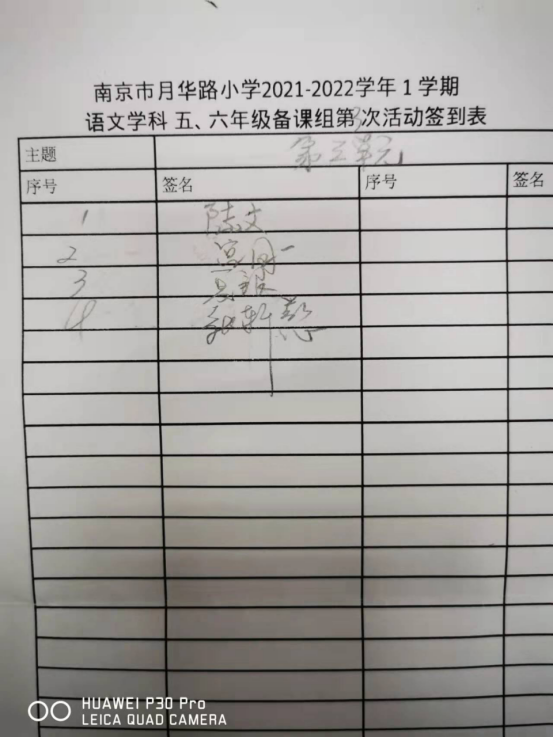 南京市月华路小学2021-2022学年 1 学期
语文学科 五、六年级备课组第3次活动签到表
主题 第三单元
序号 签名 序号 签名
1 陆文
2
3
4
HUAWEI P30 Pro
LEICA QUAD CAMERA